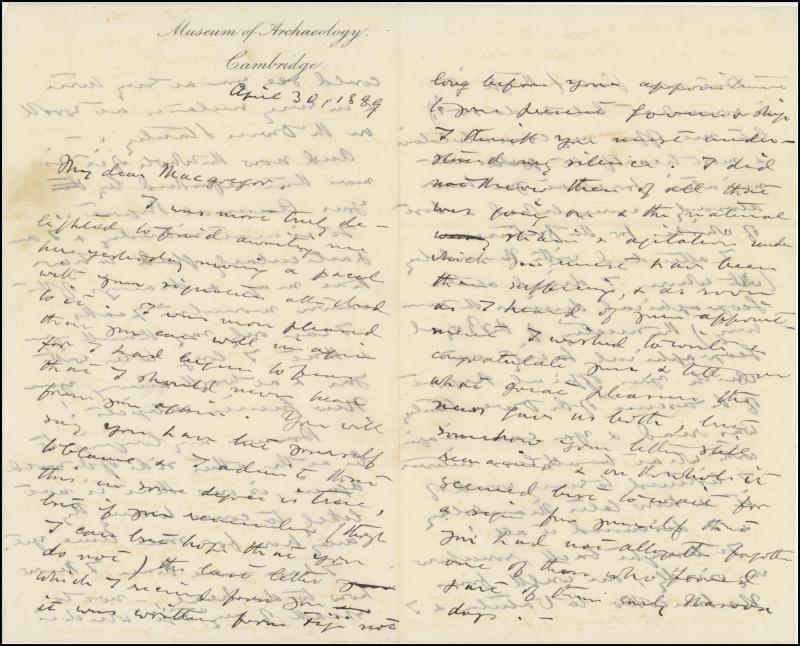 Museum of Archaeology.
Cambridge
April 30, 1889
My dear Macgregor,
I was most truly de-
lighted to find awaiting me
here yesterday morning a parcel
with your signature attached
to it. I was more pleased
than you can well imagine
for I had begun to fear
that I should never hear
from you again. You will
say you have but yourself
to blame & I admit that
this in some degree is true,
but if you remember (though
I can but hope that you
do not) the last letter
which I received from you
it was written from Fiji not
long before your appointment
to your present Governorship
I think you must under-
stand my silence. I did
not know then of all that
was going on & the natural
strain & agitation under
which you must have been
then suffering, & as soon
as I heard of your appoint-
ment I wished to write &
congratulate you & tell you
what great pleasure the
news gave us both, but
somehow your letter still
& on the whole it
seemed best to wait for
a sign from yourself that
you had not altogether forgotten
one of those who formed
part of those early
days. -